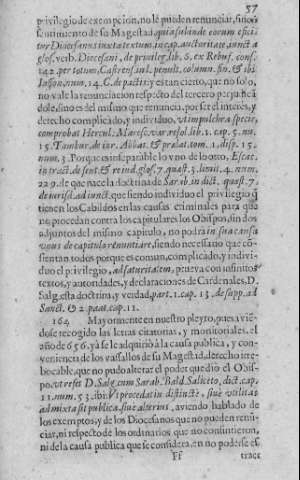 57
privilegio de exempcion, no le pueden renunciar, sino cõ
sentimiento de su Magestad, quia salunde eorum effici
tur Diocesanus iuxta textum, in cap. auctoritate, iunct. a
glos. verb. Diocesani, de privileg. lib. 6. ex Rebuf. cons.
142. per totum, Cassres
Iason, num. 14. C. de pactis: y es tan cierto, que no solo,
no vale la renunciacion respecto del tercero
dole, sino es del mismo que renuncia, por ser el interès, y
derecho complicado, y individuo, vt impulchra specie,
comprobat Hercul. Maresc. var. resol. lib. 1. cap. 5. nu.
15. Tambur. de iur. Abbat. & prælat. tom. 1. disp. 15.
num. 3. Porque es inseparable lo vno de lo otro, Escac.
in tract. de sent. & re iud. glos. 7. quæst. 3. limit. 4. num.
229. de que nace la doctrina de Sarab. in dict. quæst. 7.
de iurisd. adiunct. que siendo individuo el privilegio q̃
tienen los Cabildos en las causas criminales para que
no procedan contra los capitulares los Obispos, sin dos
adjuntos del mismo capitulo, no podrà in sua causa
vnus de capitulo renuntiare, siendo necessario que cõ-
sientan todos porque es comun, complicado, y indivi-
duo el privilegio, ad satietatem, prueva con infinitos
textos, y autoridades, y declaraciones de Cardenales, D.
Salg. esta doctrina, y verdad, part. 1. cap. 13. de supp. ad
Sanct. & 2. part. cap. 11.
164 Mayormente en nuestro pleyto, pues avien-
dose recogido las letras citatorias, y monitoriales, el
año de 656. yà se le adquiriò à la causa publica, y con-
veniencia de los vassallos de su Magestad, derecho irre-
bocable, que no pudo alterar el poder que diò el Obis-
po, vt resert D. Salg. cum Sarab. Bald. Saliceto, dict. cap.
11. num. 53. ibi: Vt procedat in distinctè, siuè vtilitas
admixta sit publica, siue alterius, aviendo hablado de
los exemptos, y de los Diocesanos que no pueden renun-
ciar, ni respecto de los ordinarios que no consintieron,
ni de la causa publica que se considera, en no poderse es
Ff tract